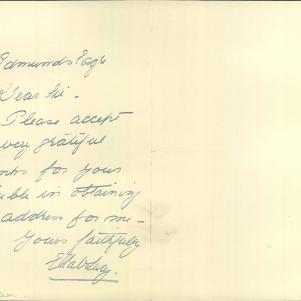 Edmunds
Dear Sir -
Please accept
very grateful
nks for your
uble in obtaining
address for me -
Yours faithfully